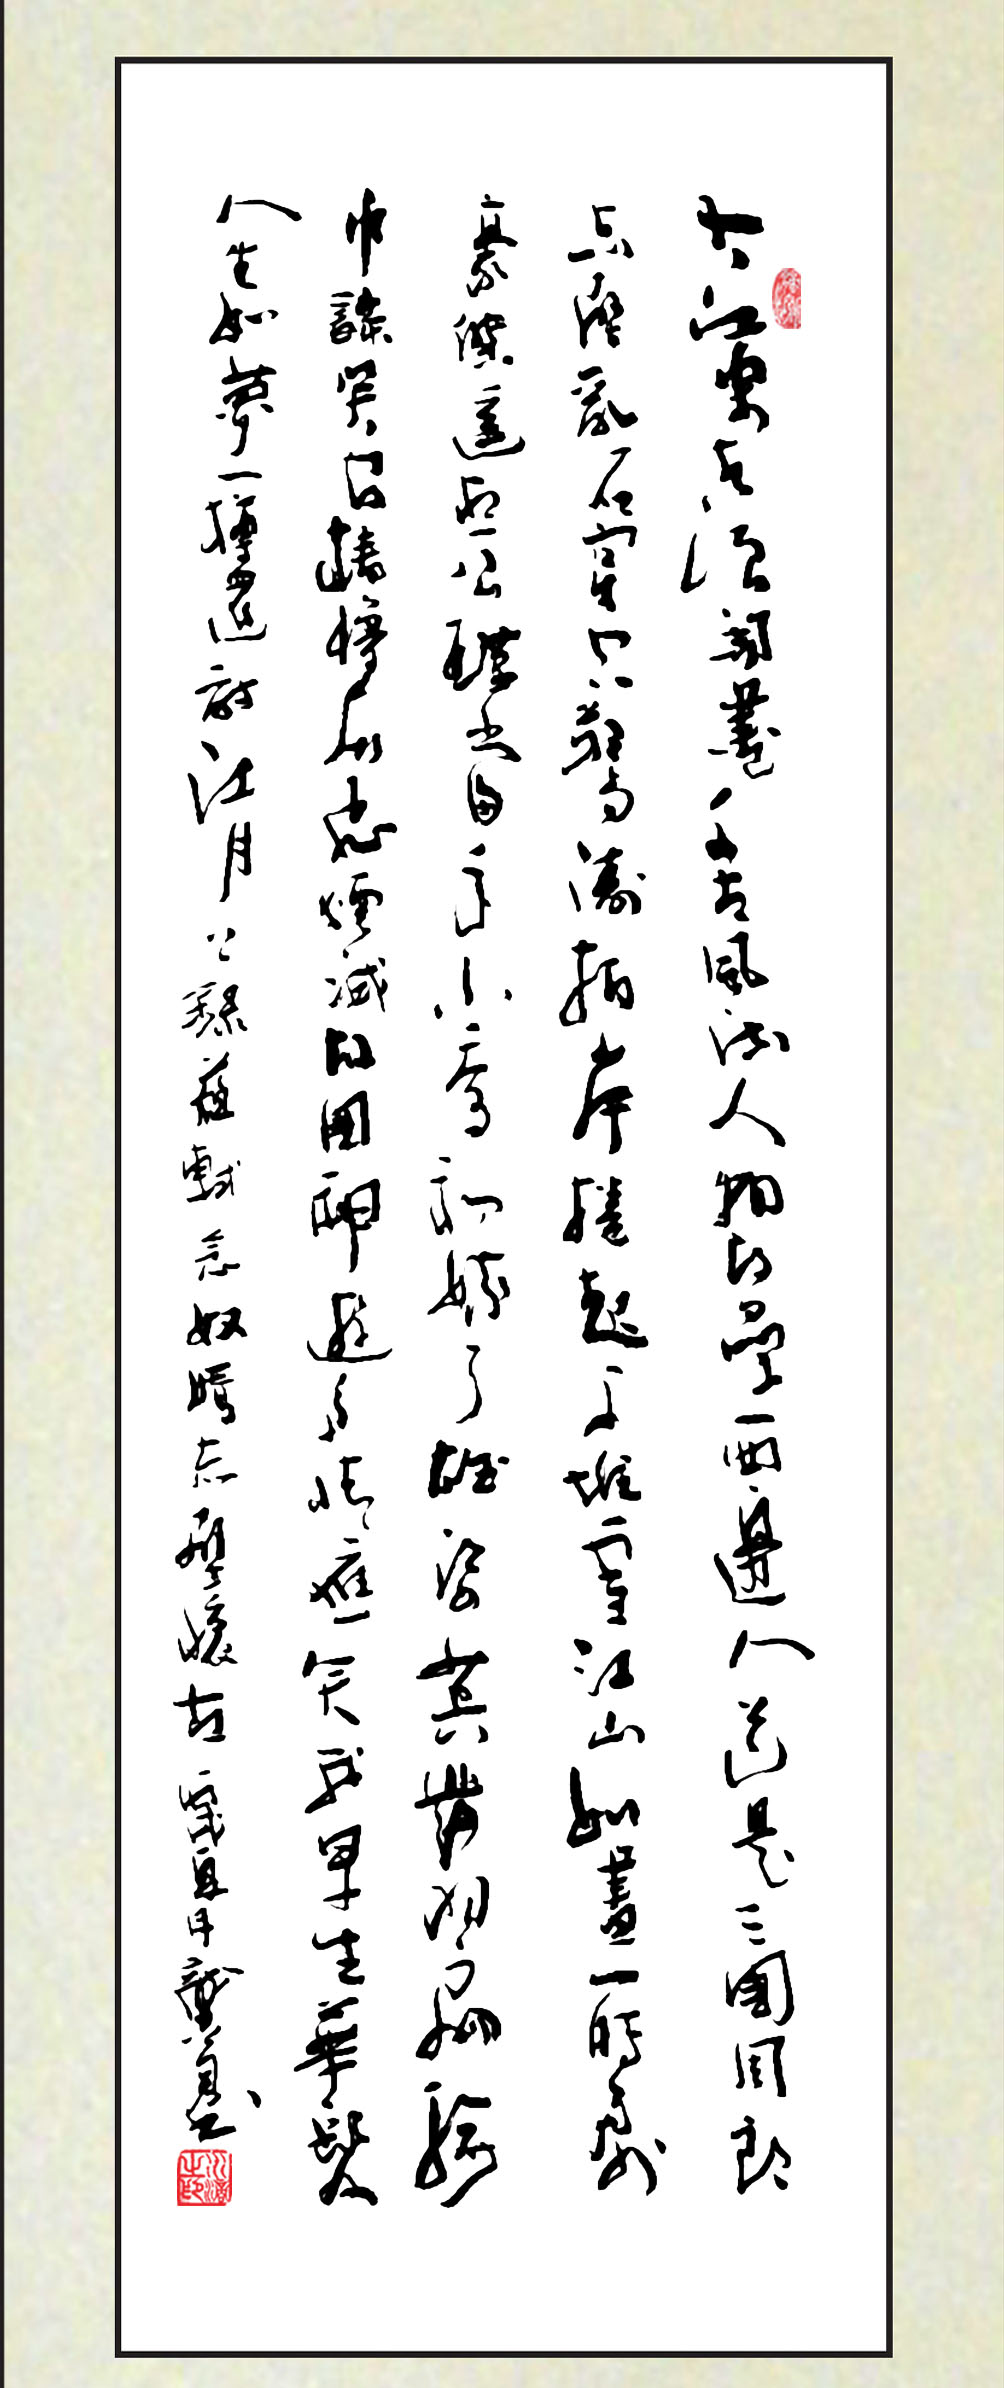 大江東去浪淘盡千古風流人物故壘西邊人道是三國周郎
赤壁亂石穿空驚濤拍岸捲起千堆雪江山如畫一時多少
豪傑遙想公瑾當年小喬初嫁了雄姿英發羽扇綸
巾談笑間檣櫓灰飛煙滅故國神遊多情應笑我早生華髮
人生如夢一樽還酹江月 錄蘇軾念奴嬌赤壁懷古 歲夏月